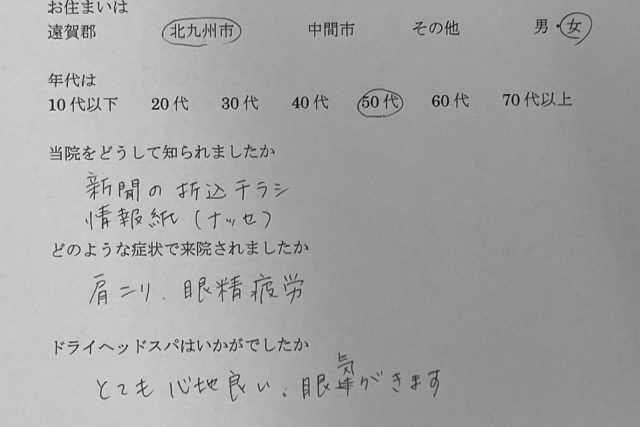 お住まいは
遠賀郡 北九州市 中間市 その他 男・女
年代は
10代以下 20代 30代 40代 50代 60代 70代以上
当院をどうして知られましたか
新聞の折込チラシ
情報紙(ナッセ)
どのような症状で来院されましたか
肩こり、眼精疲労
ドライヘッドスパはいかがでしたか
とても心地良い。眠気がきます